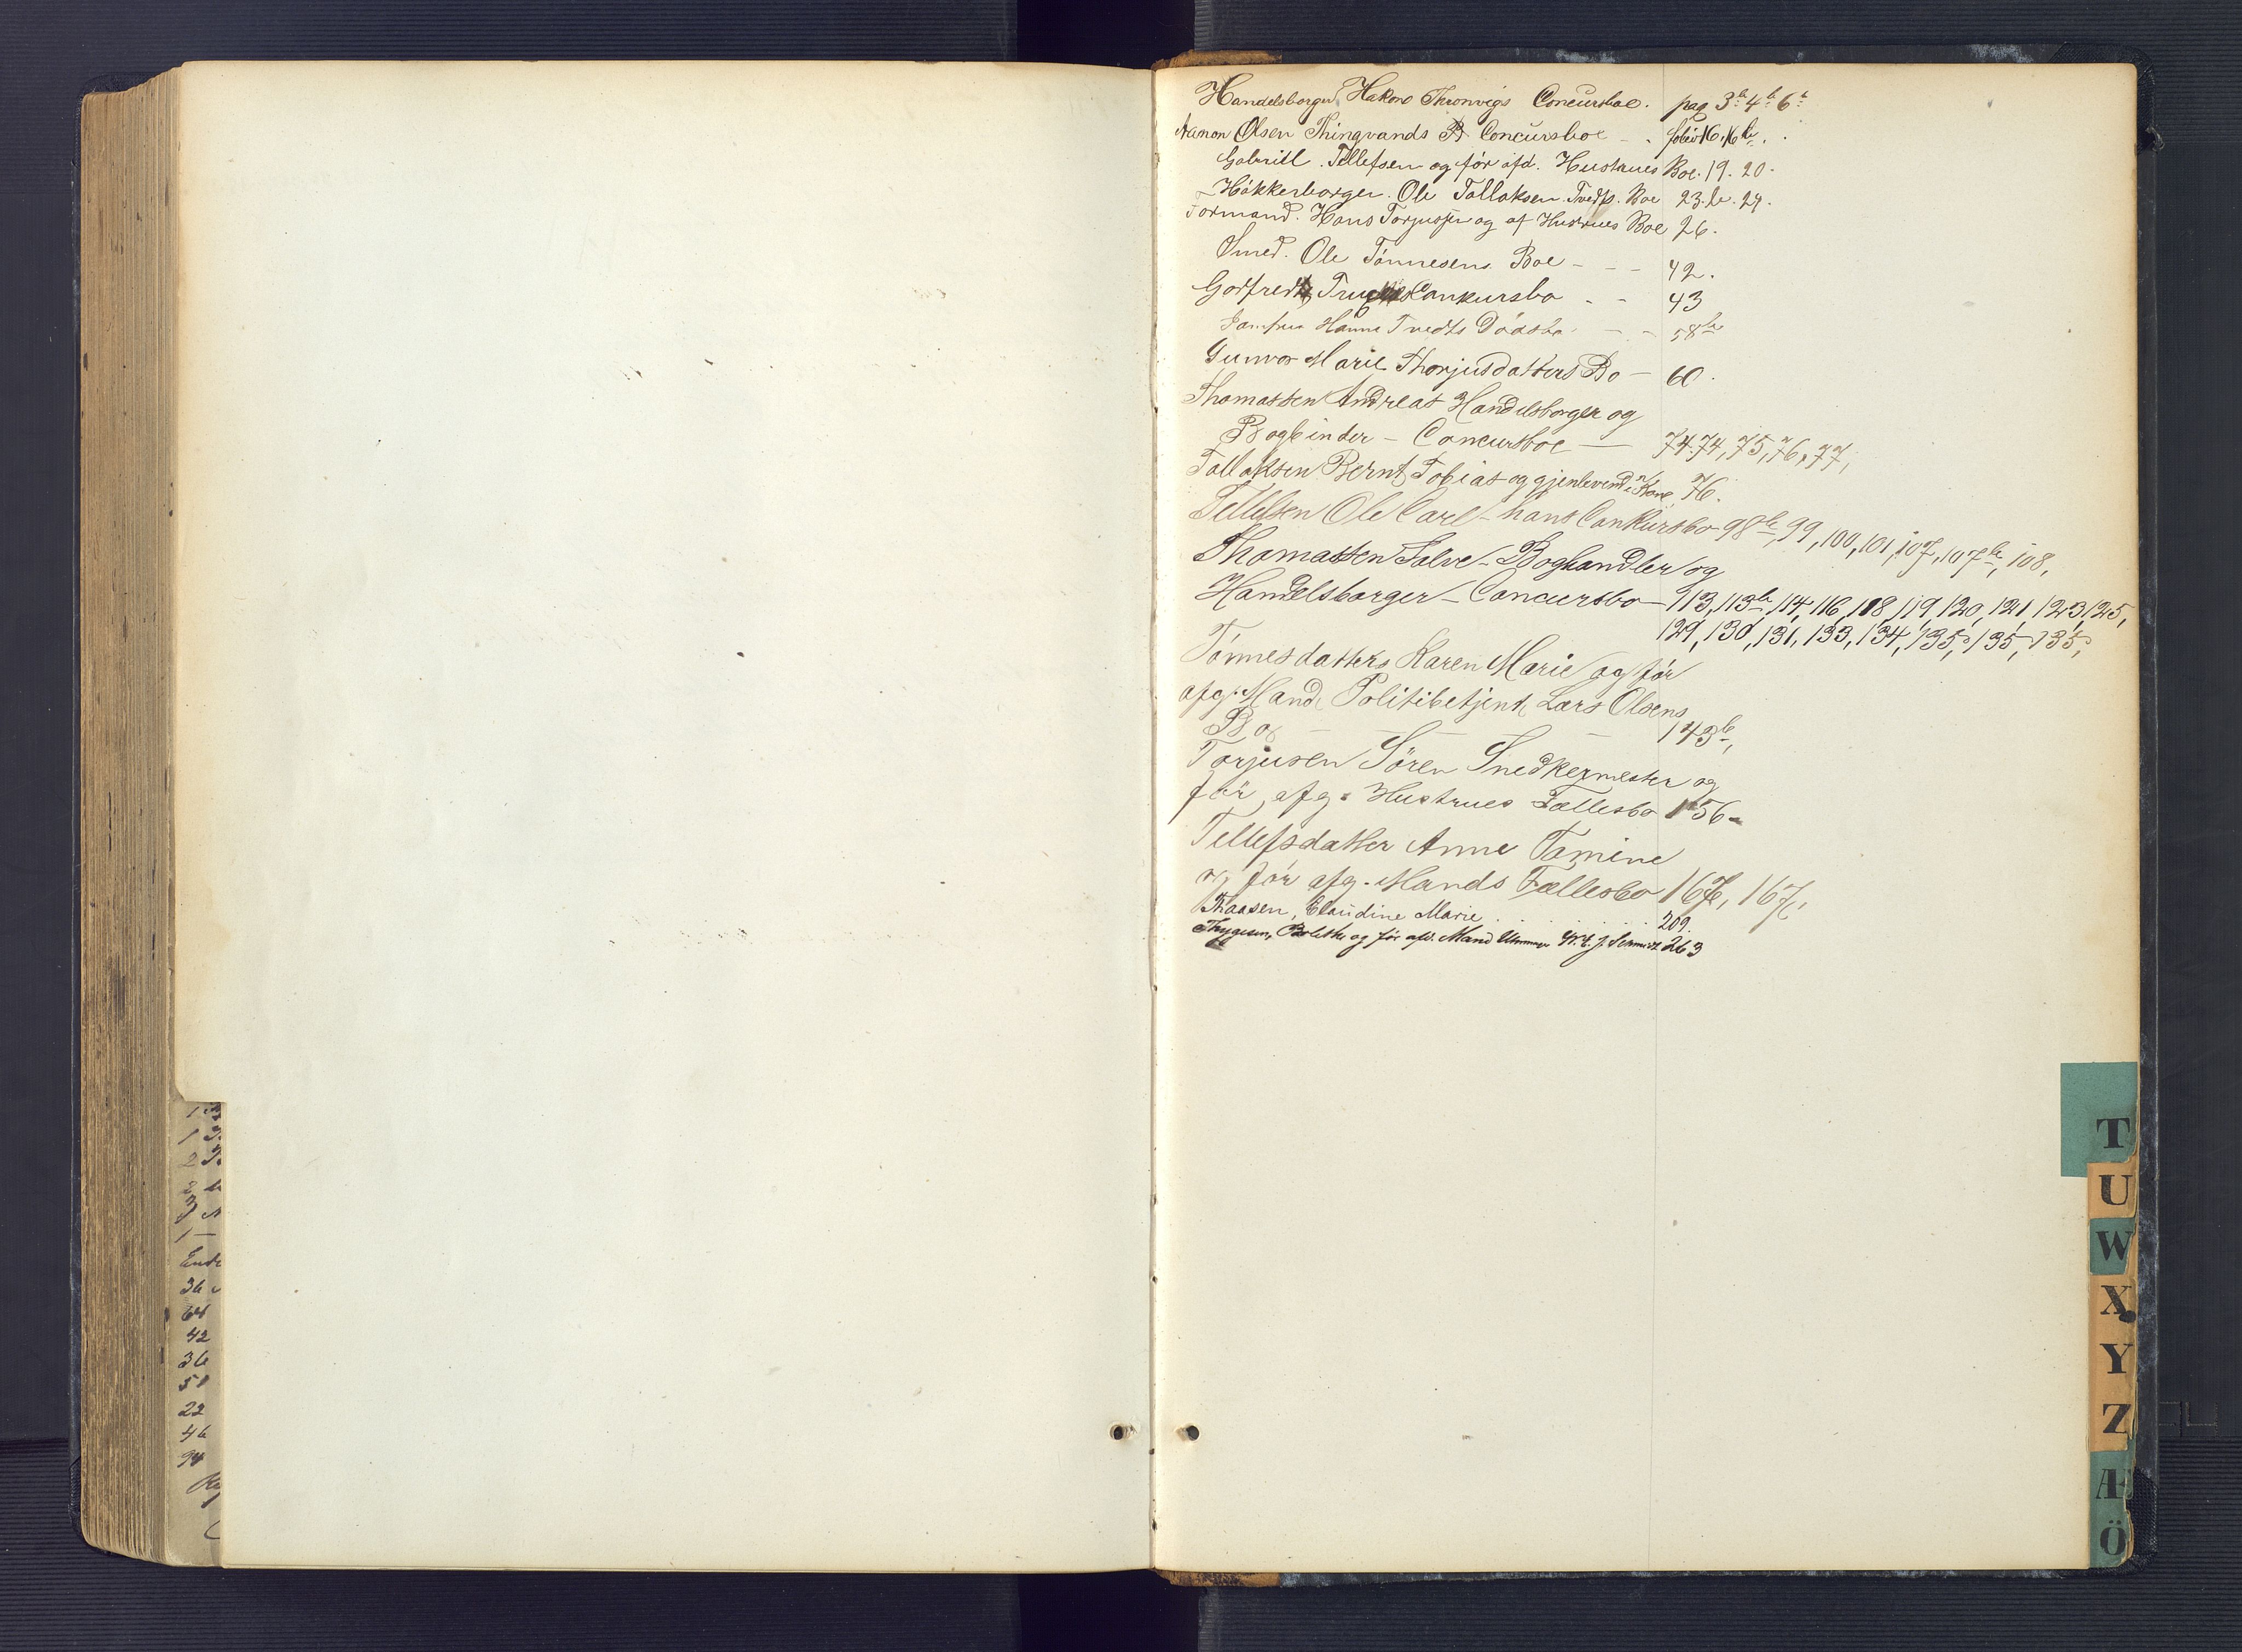 Handelsborger Hakon Thronvigs Concursboe. pag 3b 4b 6b
Aanon Olsen Thingvands B. Concursboe - . folio 16. 16b. .
Gabriel Tellefsen og før afd. Hustrues Boe. 19. 20.
Høkkerborger. Ole Tallaksen Boe 23. b. 24.
Formand. Hans Torjussen og af Hustrues Boe 26.
Smed. Ole Tønnesens Boe - - - 42.
Godfred Conkursbo - - 43
Jomfru Hanne Tvedts Dødsbo - - 58b
Gunvor Marie Thorjusdatters Bo - 60.
Thomassen Andreas Handelsborger og
Bogbinder - Concursboe - 74. 74, 75, 76, 77,
Tallaksen Bernt Tobias og gjenlevende Kone 76.
Tellefsen Ole Carl - hans Conkursbo - 98b, 99, 100, 101, 107, 107b, 108,
Thomassen Salve - Boghandler og
Handelsborger - Concursbo - 113, 113b, 114, 116, 118, 119, 120, 121, 123, 125,
129, 130, 131, 133, 134, 135, 135, 135,
Tønnesdatters Karen Marie og før
afg. Mand Politibetjent Lars Olsens
Bo - - - 143b,
Torjusen Sören Snedkermester og
før afg. Hustrues Fællesbo 156 -
Tellefsdatter Anne Tomine
og før afg. Mands Fællesbo 167, 167,
Thaasen, Claudine Marie . . . . . 209.
Thygesen, Bolette og før afd. Mand 263
T
U
W
X
Y
Z
Æ
Ö
36
64
42
36
50
22
46
94